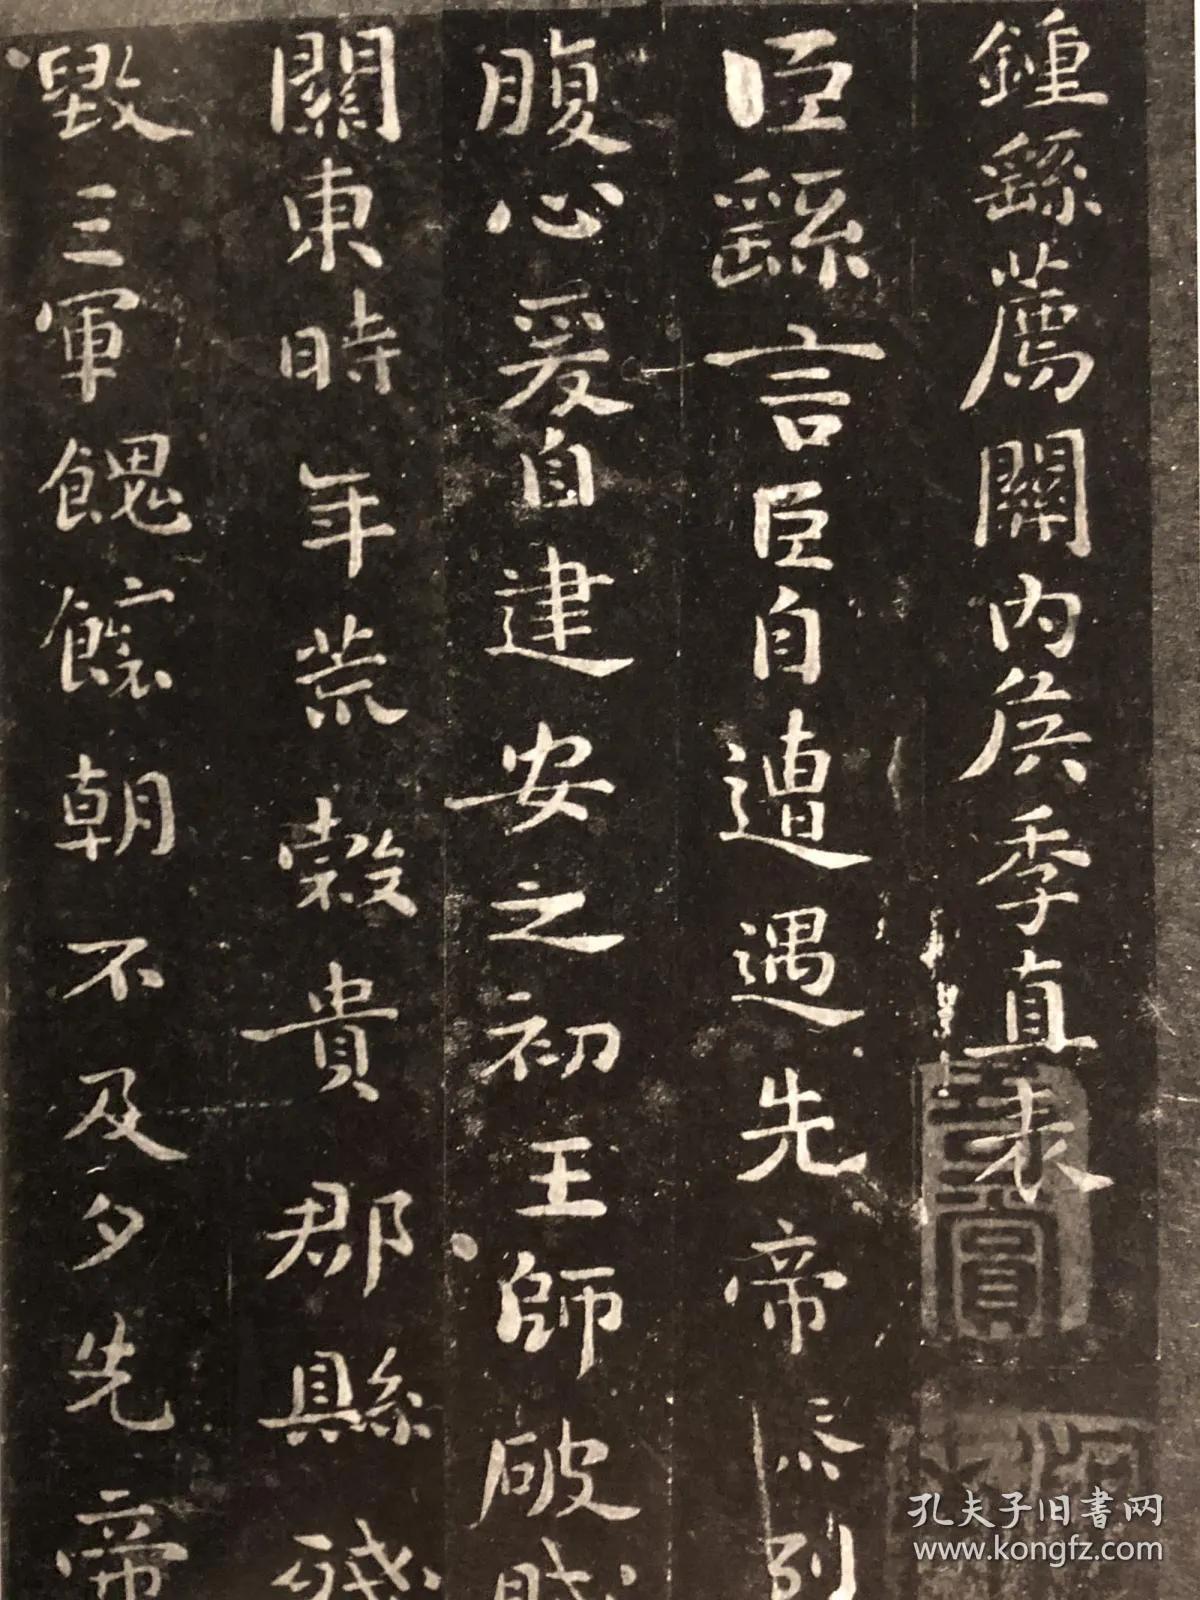 鍾繇薦關内侯季直表
臣繇言臣自遭遇先帝忝列
腹心爰自建安之初王師破賊
關東時年荒榖貴郡縣殘
毀三軍餽饟朝不及夕先帝
孔夫子旧書网
www.kongfz.com